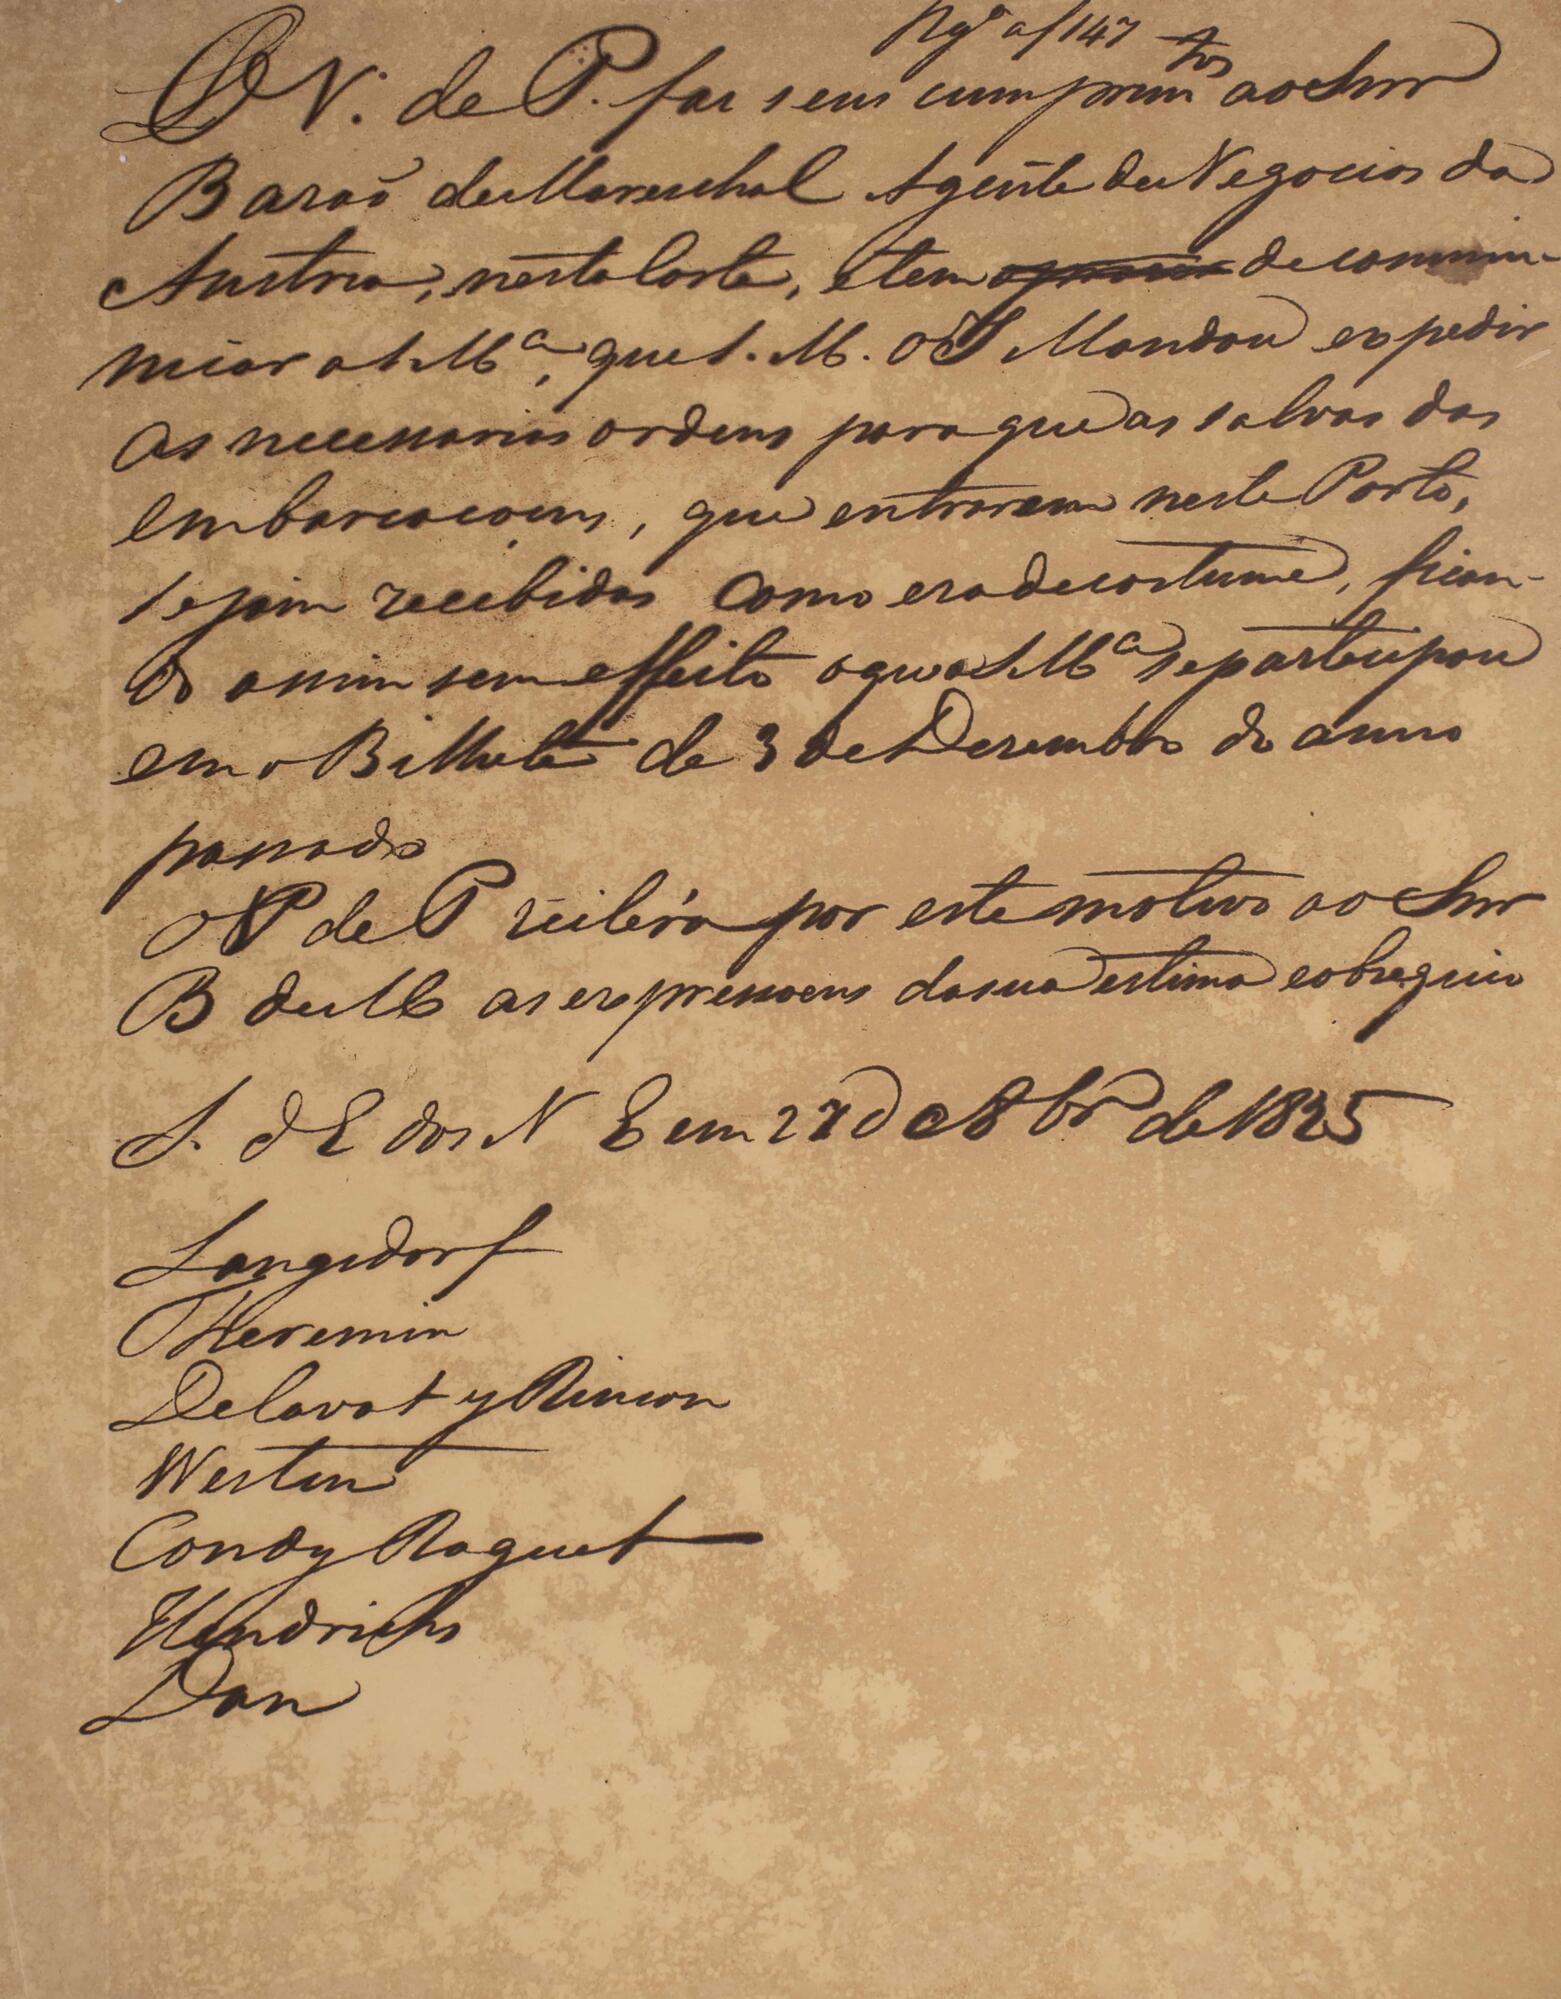 Rg.º a f 147
O V. de P. faz seus cumprim.tos ao Snr
Barão de Mareschal Agente de Negocios da
Austria, nesta Corte, e tem de commu-
nicar a S. M.ce, que S. M. O I. Mandou expedir
as necessarias ordens para que as salvas das
embarcacoens, que entrarem neste Porto,
sejam recebidas como era de costume, fican-
do assim sem effeito o que a S. M.ce se participou
em o Bilhete de 3 de Dezembro do anno
passado
O V de P reitéra por este motivo ao Snr
B de M as expressoens da sua estima e obsequio
S. d E dos N E em 27 de 8br.o de 1825
Langsdorf
Theremin
Delavat y Rincon
Westin
Condy Raguet
Hendrichs
Dan